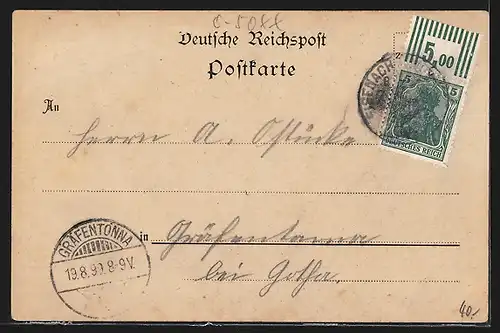 Deutsche Reichspost
Postkarte
5,00
5 5
DEUTSCHES REICH
An
Herrn A. Ostücke
in Gräfentonna
bei Gotha.
GRÄFENTONNA
19.8.99. 8-9V.
40,-